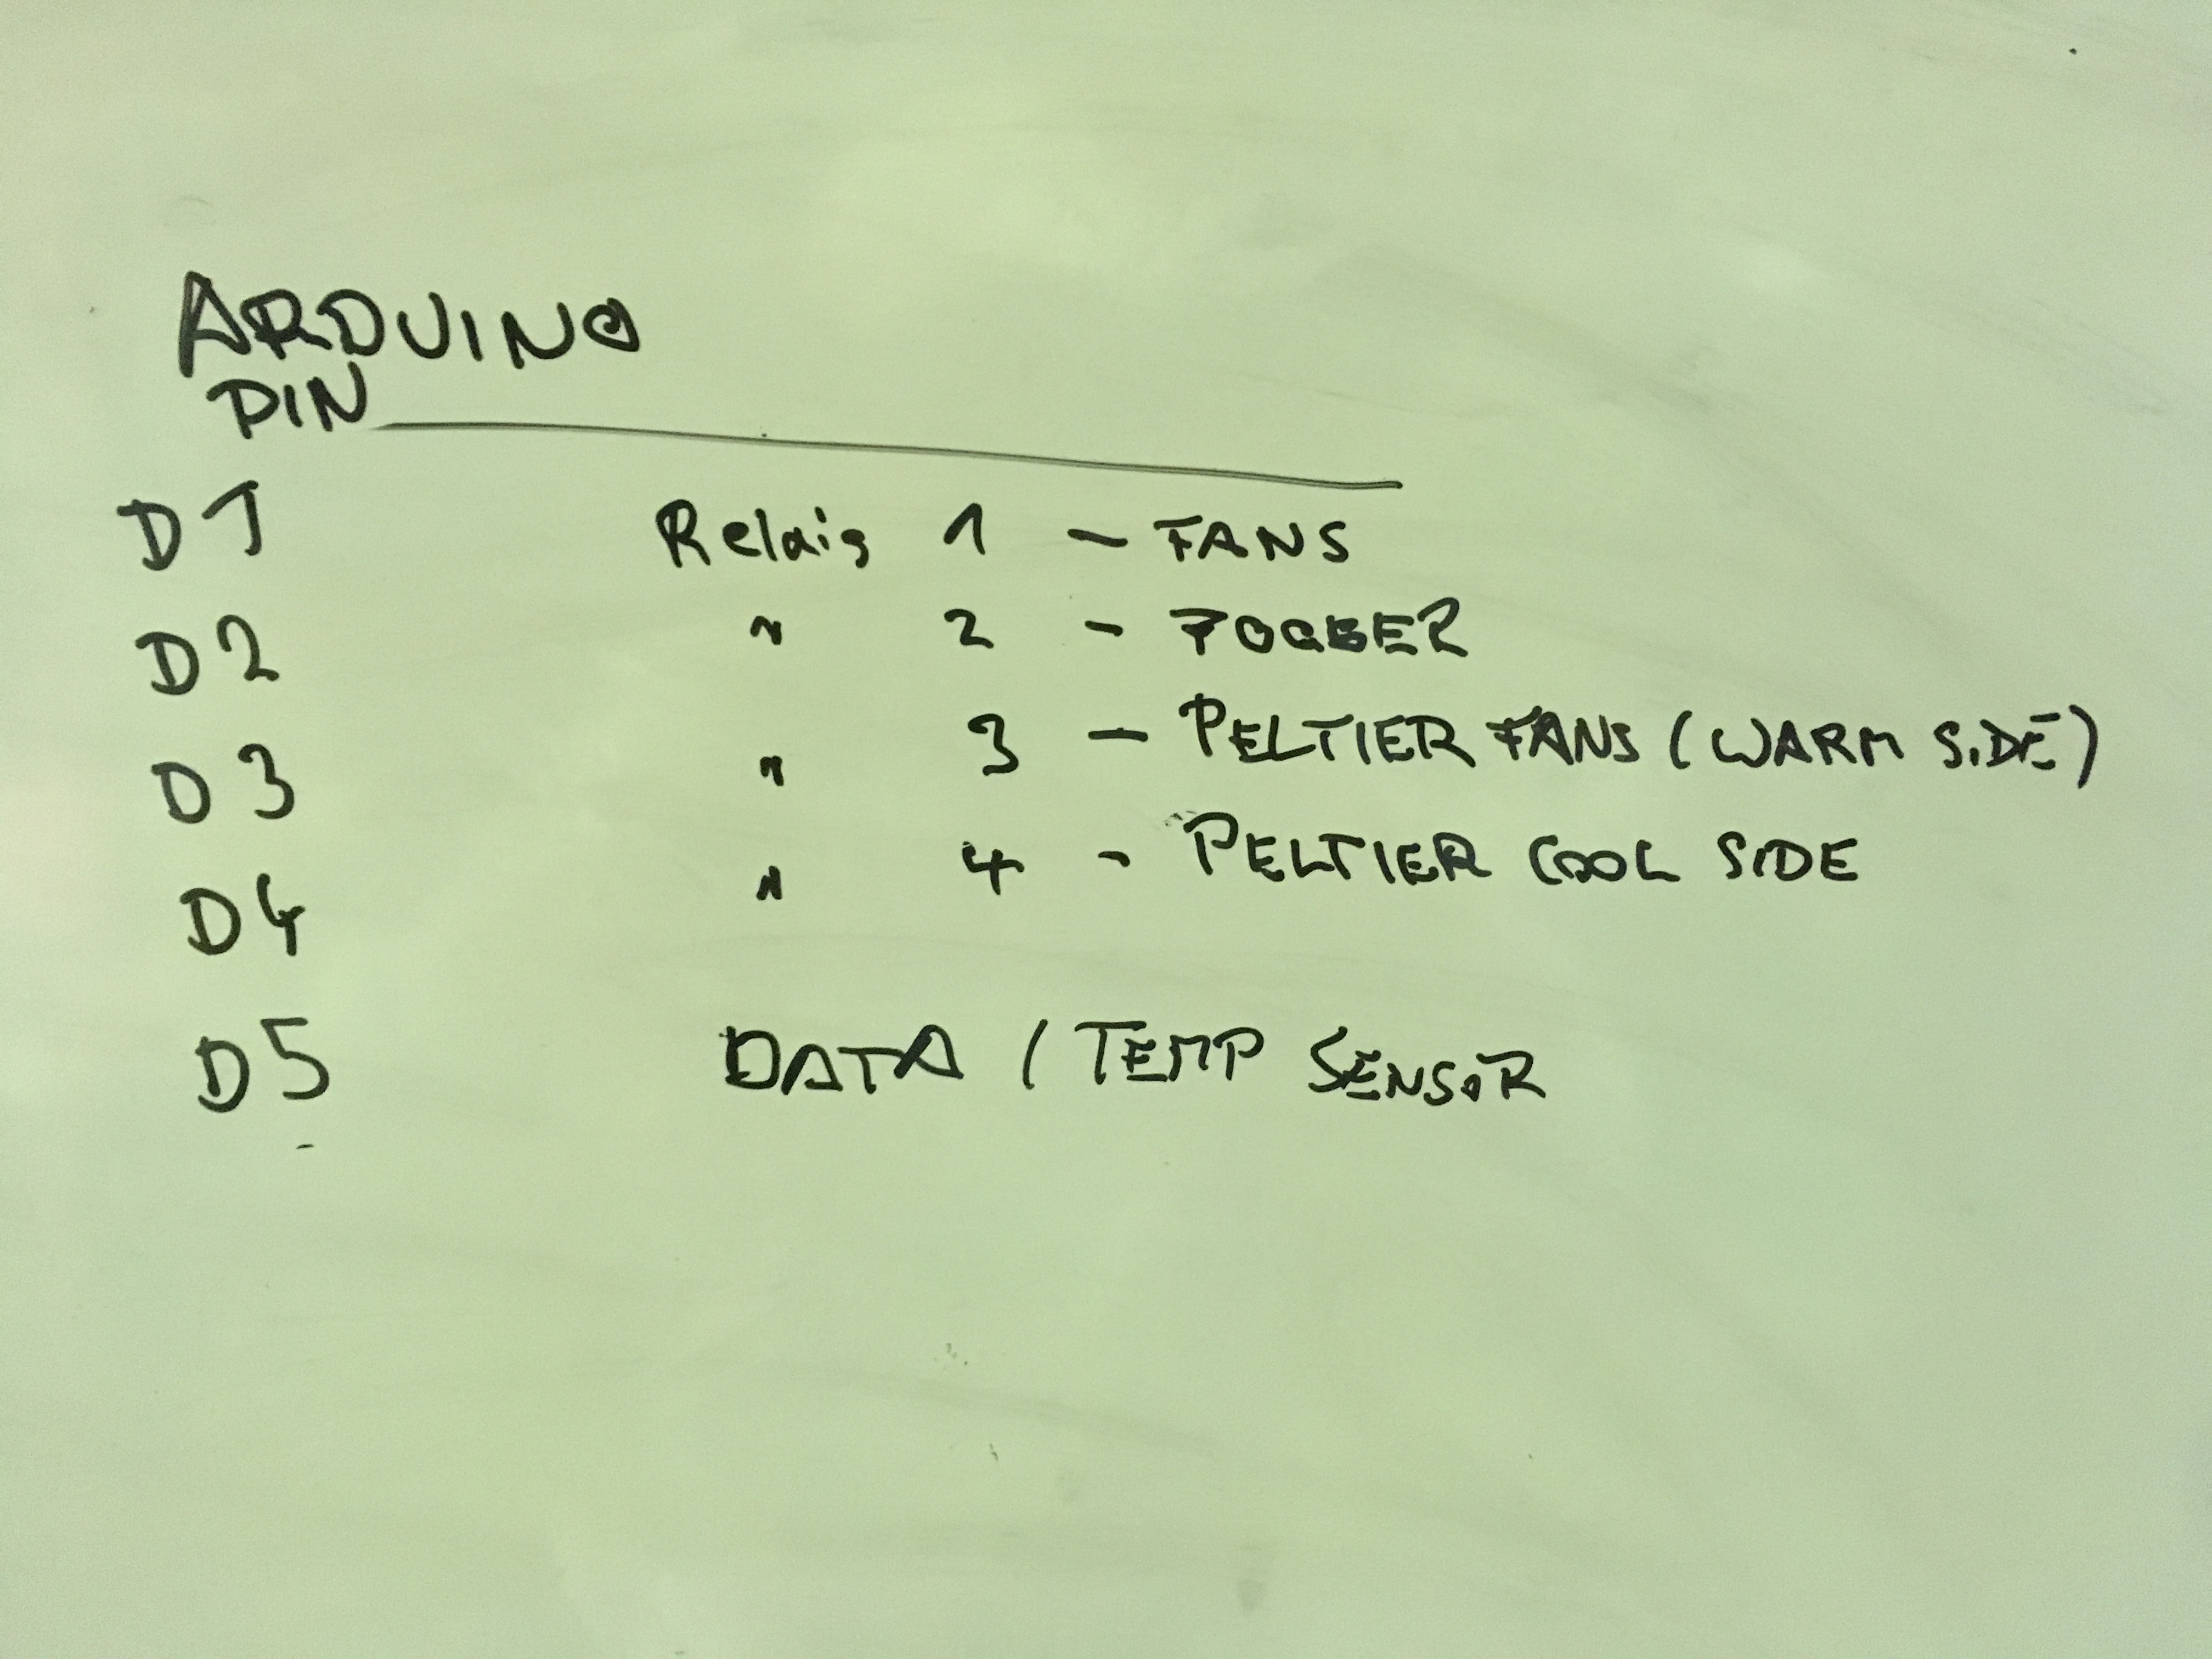 ARDUINO
PIN
D1 Relais 1 - FANS
D2 " 2 - FOGGER
D3 " 3 - PELTIER FANS (WARM SIDE)
D4 " 4 - PELTIER COOL SIDE
D5 DATA / TEMP SENSOR